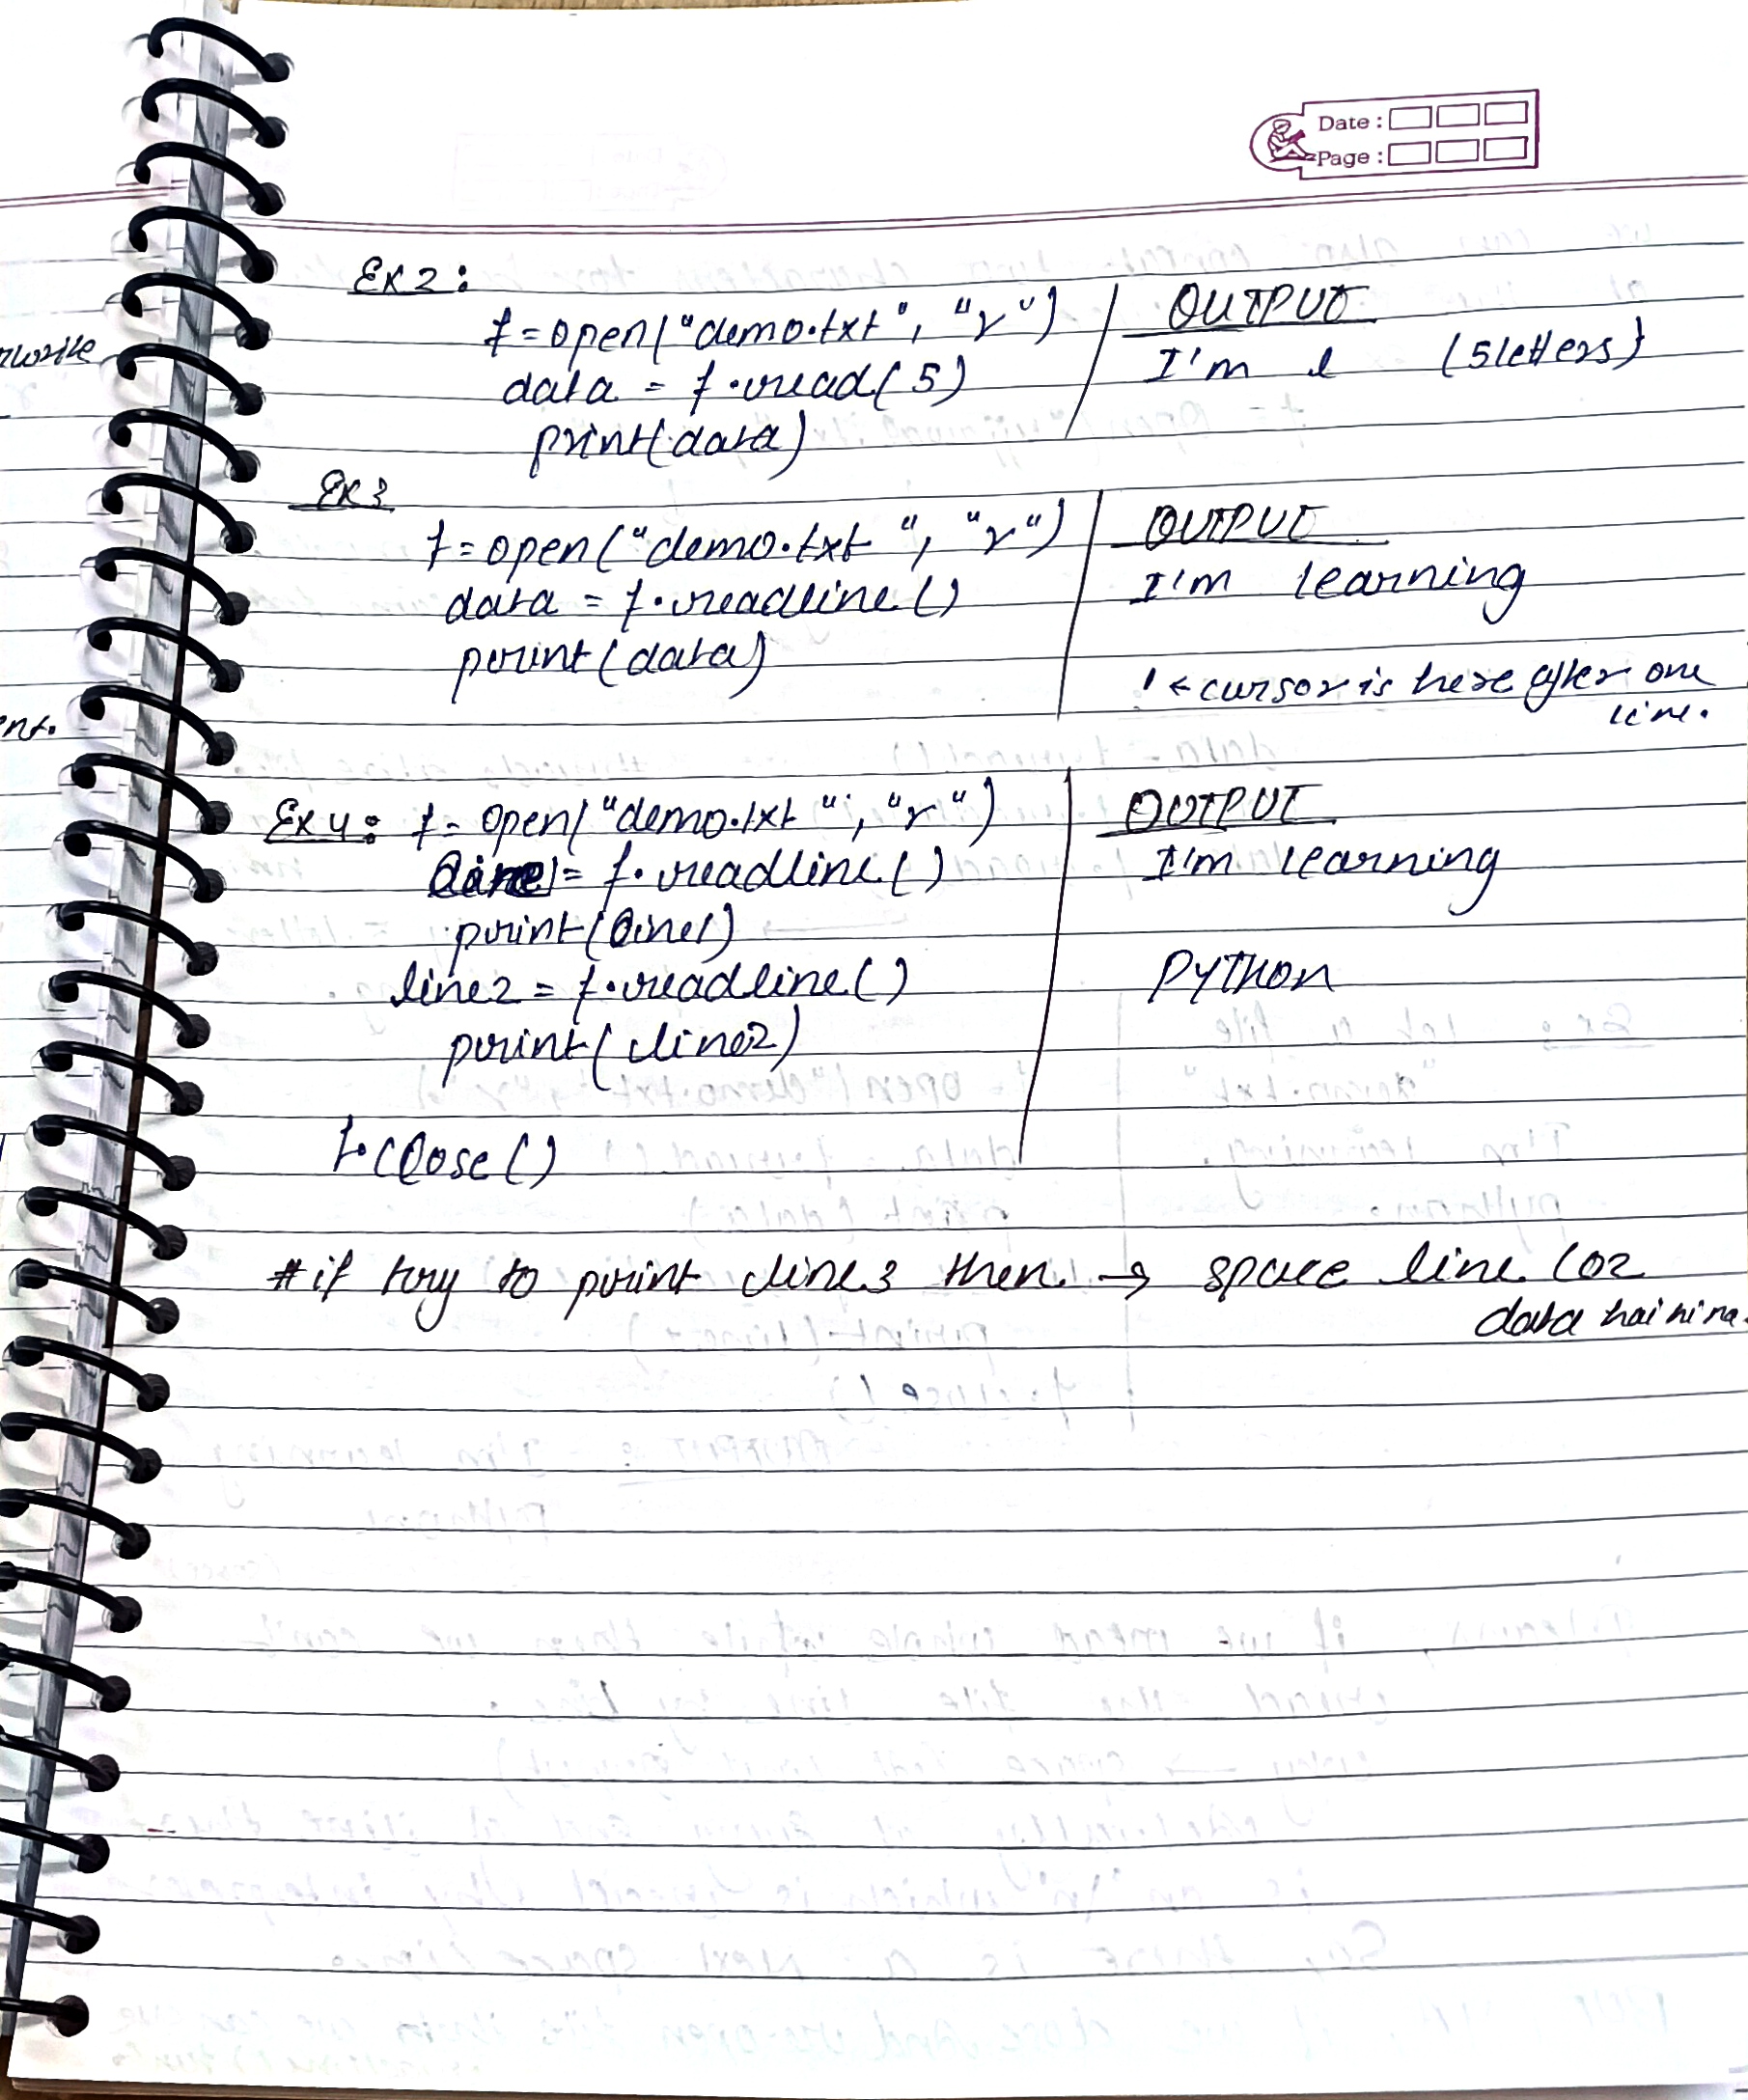 Date :
Page :
Ex 2 :
f = open("demo.txt", "r")
data = f.read(5)
print(data)
OUTPUT
I'm l (5letters)
Ex 3
f = open("demo.txt", "r")
data = f.readline()
print(data)
OUTPUT
I'm learning
! ← cursor is here after one
line.
Ex 4 : f = open("demo.txt", "r")
line1 = f.readline()
print(line1)
line2 = f.readline()
print(line2)
f.close()
OUTPUT
I'm learning
PYTHON
# if try to print line3 then → space line coz
data hai hi na.
ent.